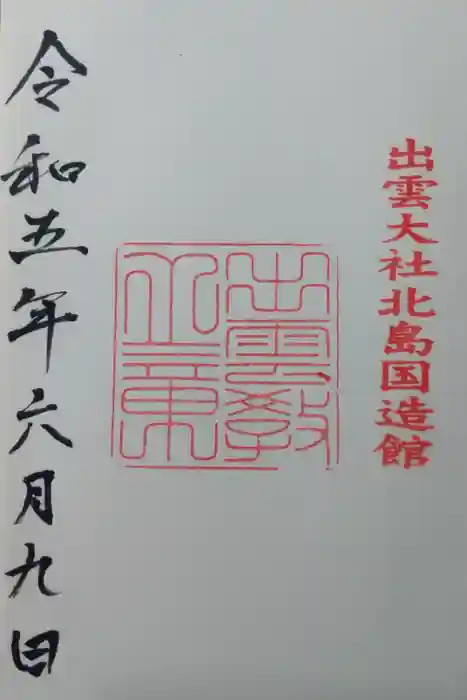 出雲大社北島国造館
出雲教
令和五年六月九日